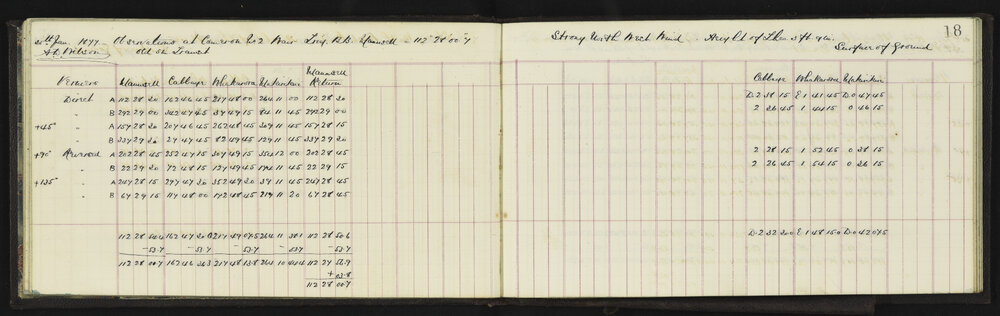 18
20th Jan. 1877. Observations at Cameron No 2 Mannsell - 112° 28' 00".7 Strong North West Wind Height of 5ft 9in.
A. C. Wilson Old on Transit Surface of Ground
Mannsell
Verniers Mannsell Cabbage Return Cabbage
Direct A 112 28 20 162 46 45 217 48 00 264 11 00 112 28 20 D 2 38 15 E 1 41 45 D 0 47 45
" B 292 29 00 342 47 45 37 49 15 84 11 45 292 29 00 2 26 45 1 44 15 0 46 15
+45° " A 157 28 20 207 46 45 262 48 45 309 11 45 157 28 15
" B 337 29 20 27 47 45 82 49 45 129 11 45 337 29 20
+90° Reversed A 202 28 45 252 47 15 307 49 15 354 12 00 202 28 45 2 28 15 1 52 45 0 38 15
" B 22 29 20 72 48 15 127 49 45 174 11 45 22 29 15 2 26 45 1 54 15 0 36 15
+135° " A 247 28 15 297 47 20 352 49 20 39 11 45 247 28 45
" B 67 29 15 117 48 00 172 48 45 219 11 20 67 28 45
112 28 54.4 162 47 30.0 217 49 07.5 264 11 38.1 112 28 50.6 D 2 32 30.0 E 1 48 15.0 D 0 42 07.5
- 53.7 - 53.7 - 53.7 - 53.7 - 53.7
112 28 00.7 162 46 36.3 217 48 13.8 264 10 44.4 112 27 56.9
+ 03.8
112 28 00.7